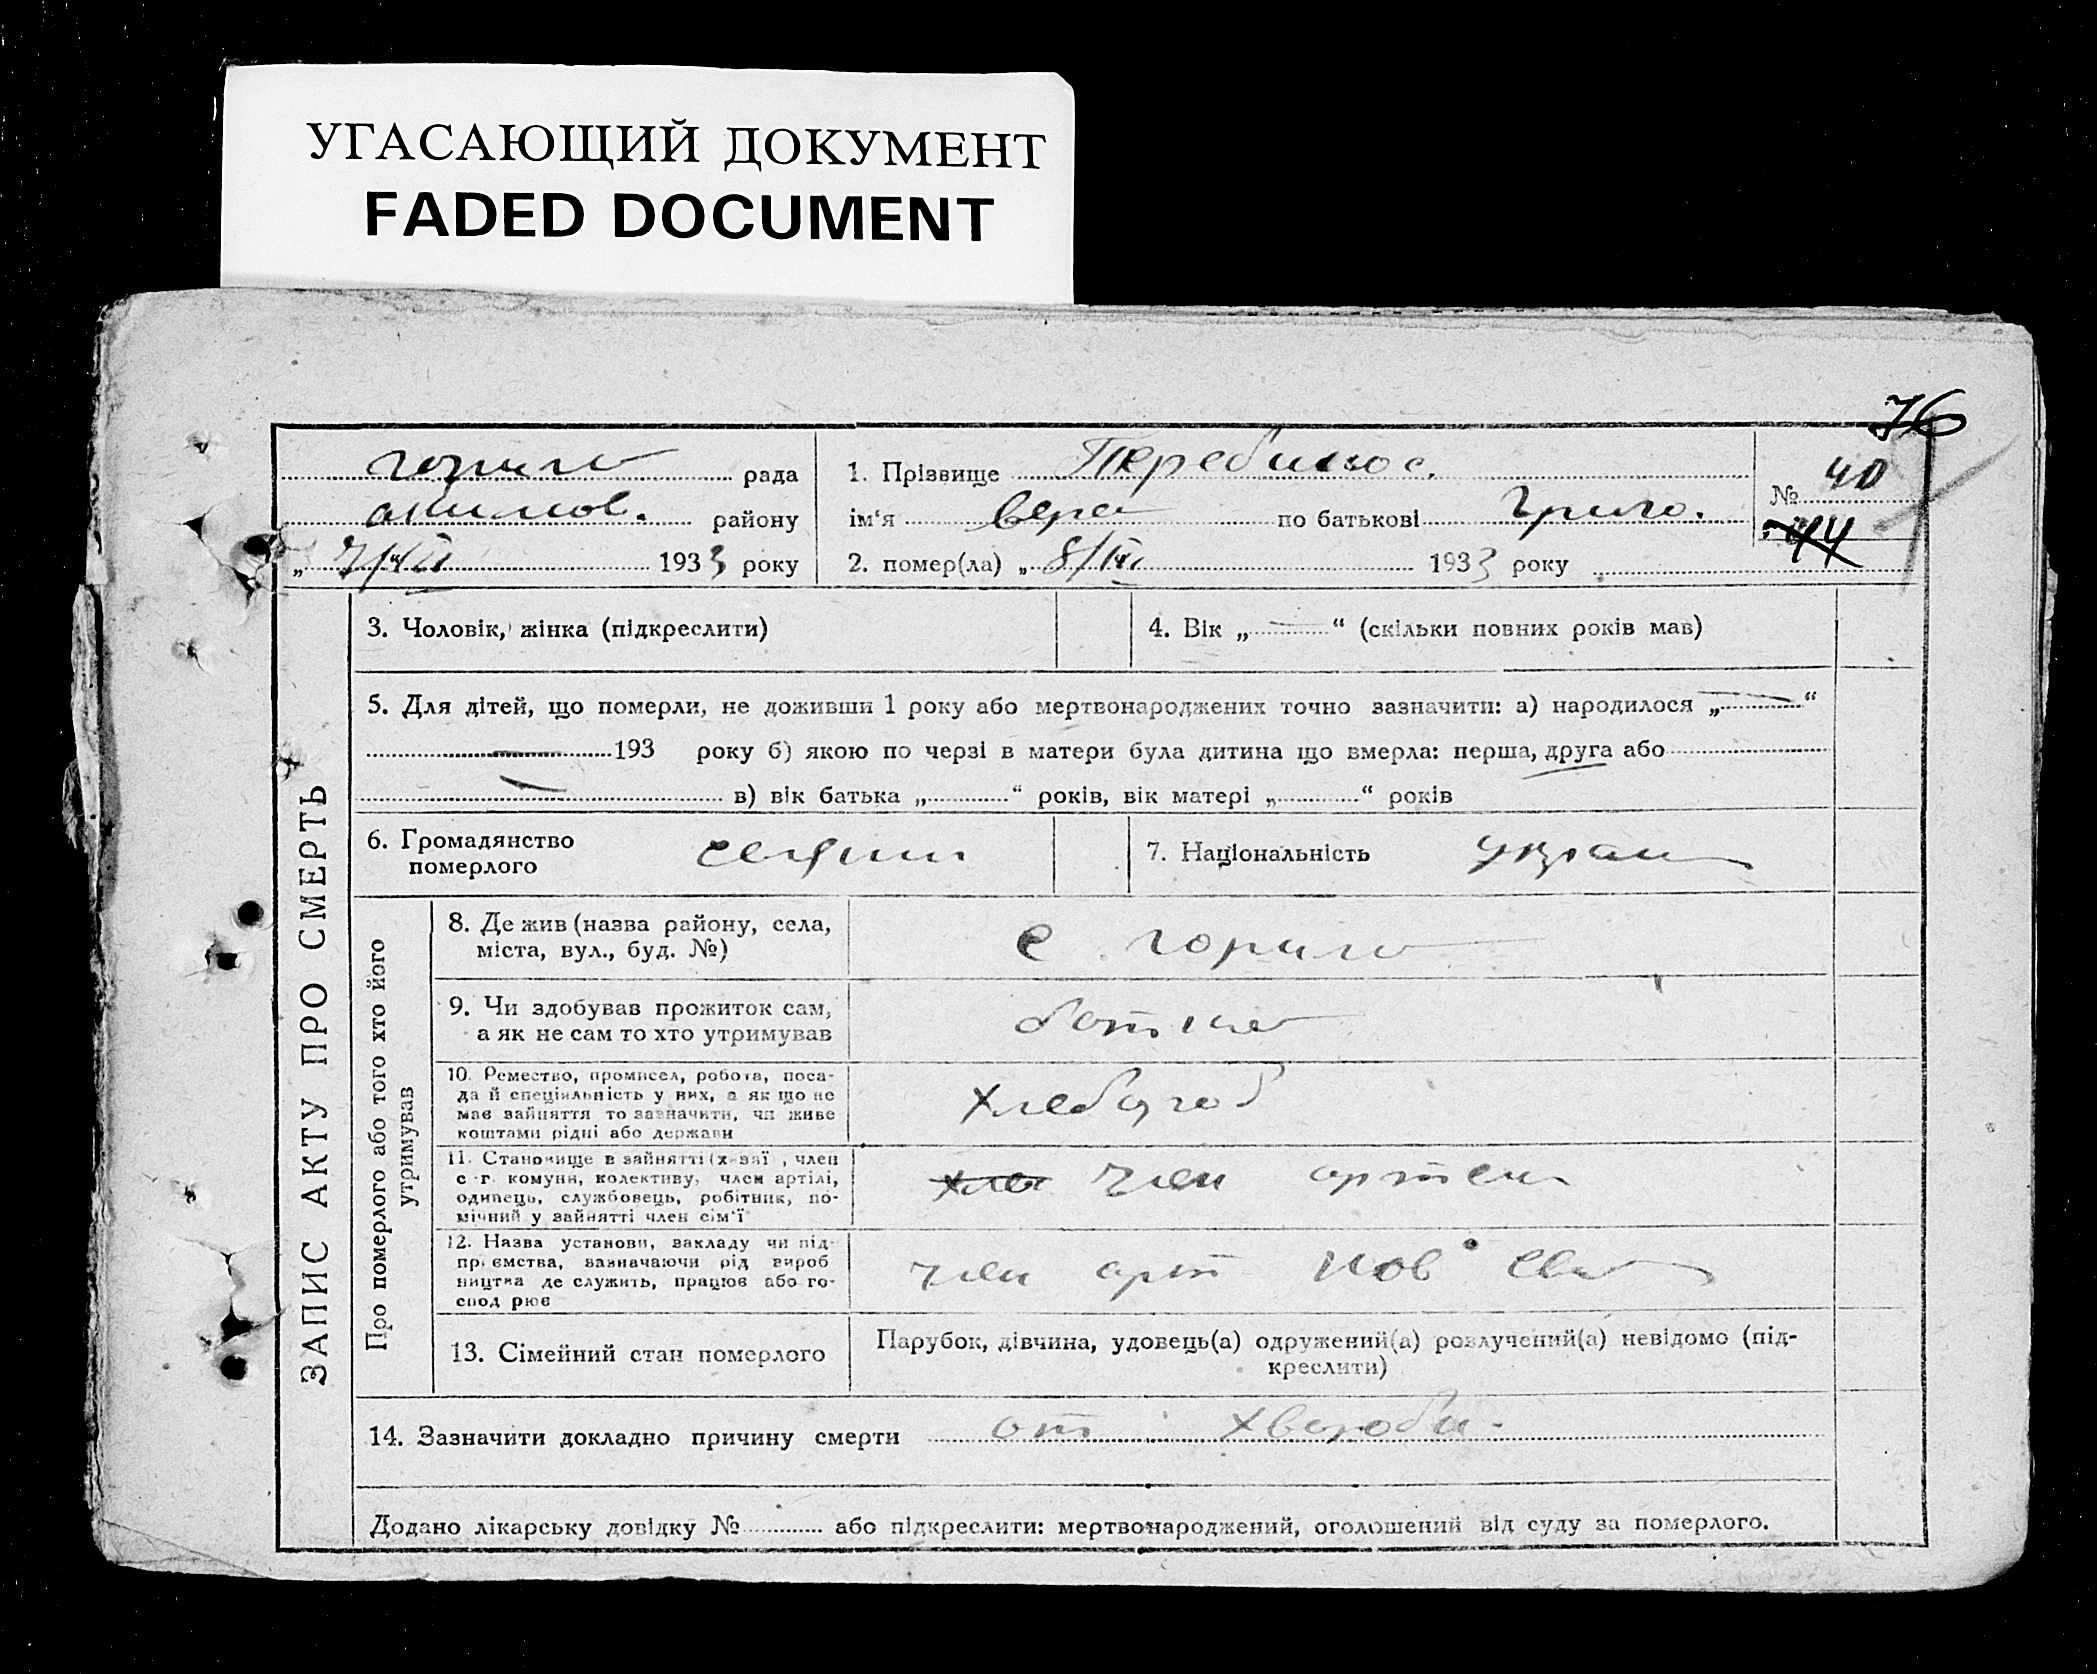 УГАСАЮЩИЙ ДОКУМЕНТ
FADED DOCUMENT
76
рада
району
1933 року
1. Прізвище
ім'я вера по батькові Григо.
2. помер(ла) „ 1933 року
№ 40
44
ЗАПИС АКТУ ПРО СМЕРТЬ
3. Чоловік, жінка (підкреслити)
4. Вік „ — “ (скільки повних років мав)
5. Для дітей, що померли, не доживши 1 року або мертвонароджених точно зазначити: а) народилося „ — “
— 193 року б) якою по черзі в матери була дитина що вмерла: перша, друга або
— в) вік батька „ “ років, вік матері „ “ років
6. Громадянство
померлого
7. Національність украин
Про померлого або того хто його
утримував
8. Де жив (назва району, села,
міста, вул., буд. №)
с
9. Чи здобував прожиток сам,
а як не сам то хто утримував
10. Ремество, промисел, робота, поса-
да й спеціяльність у них, а як що не
має зайняття то зазначити, чи живе
коштами рідні або держави
11. Становище в зайнятті (х-заї , член
с-г. комуни, колективу, член артілі,
одинець, службовець, робітник, по-
мічний у зайнятті член сім'ї
член артели
12. Назва установи, закладу чи під-
приємства, зазначаючи рід вироб
ництва де служить, працює або го-
спод рює
член арт нов
13. Сімейний стан померлого
Парубок, дівчина, удовець(а) одружений(а) розлучений(а) невідомо (під-
креслити)
14. Зазначити докладно причину смерти от хвороби.
Додано лікарську довідку № або підкреслити: мертвонароджений, оголошений від суду за померлого.